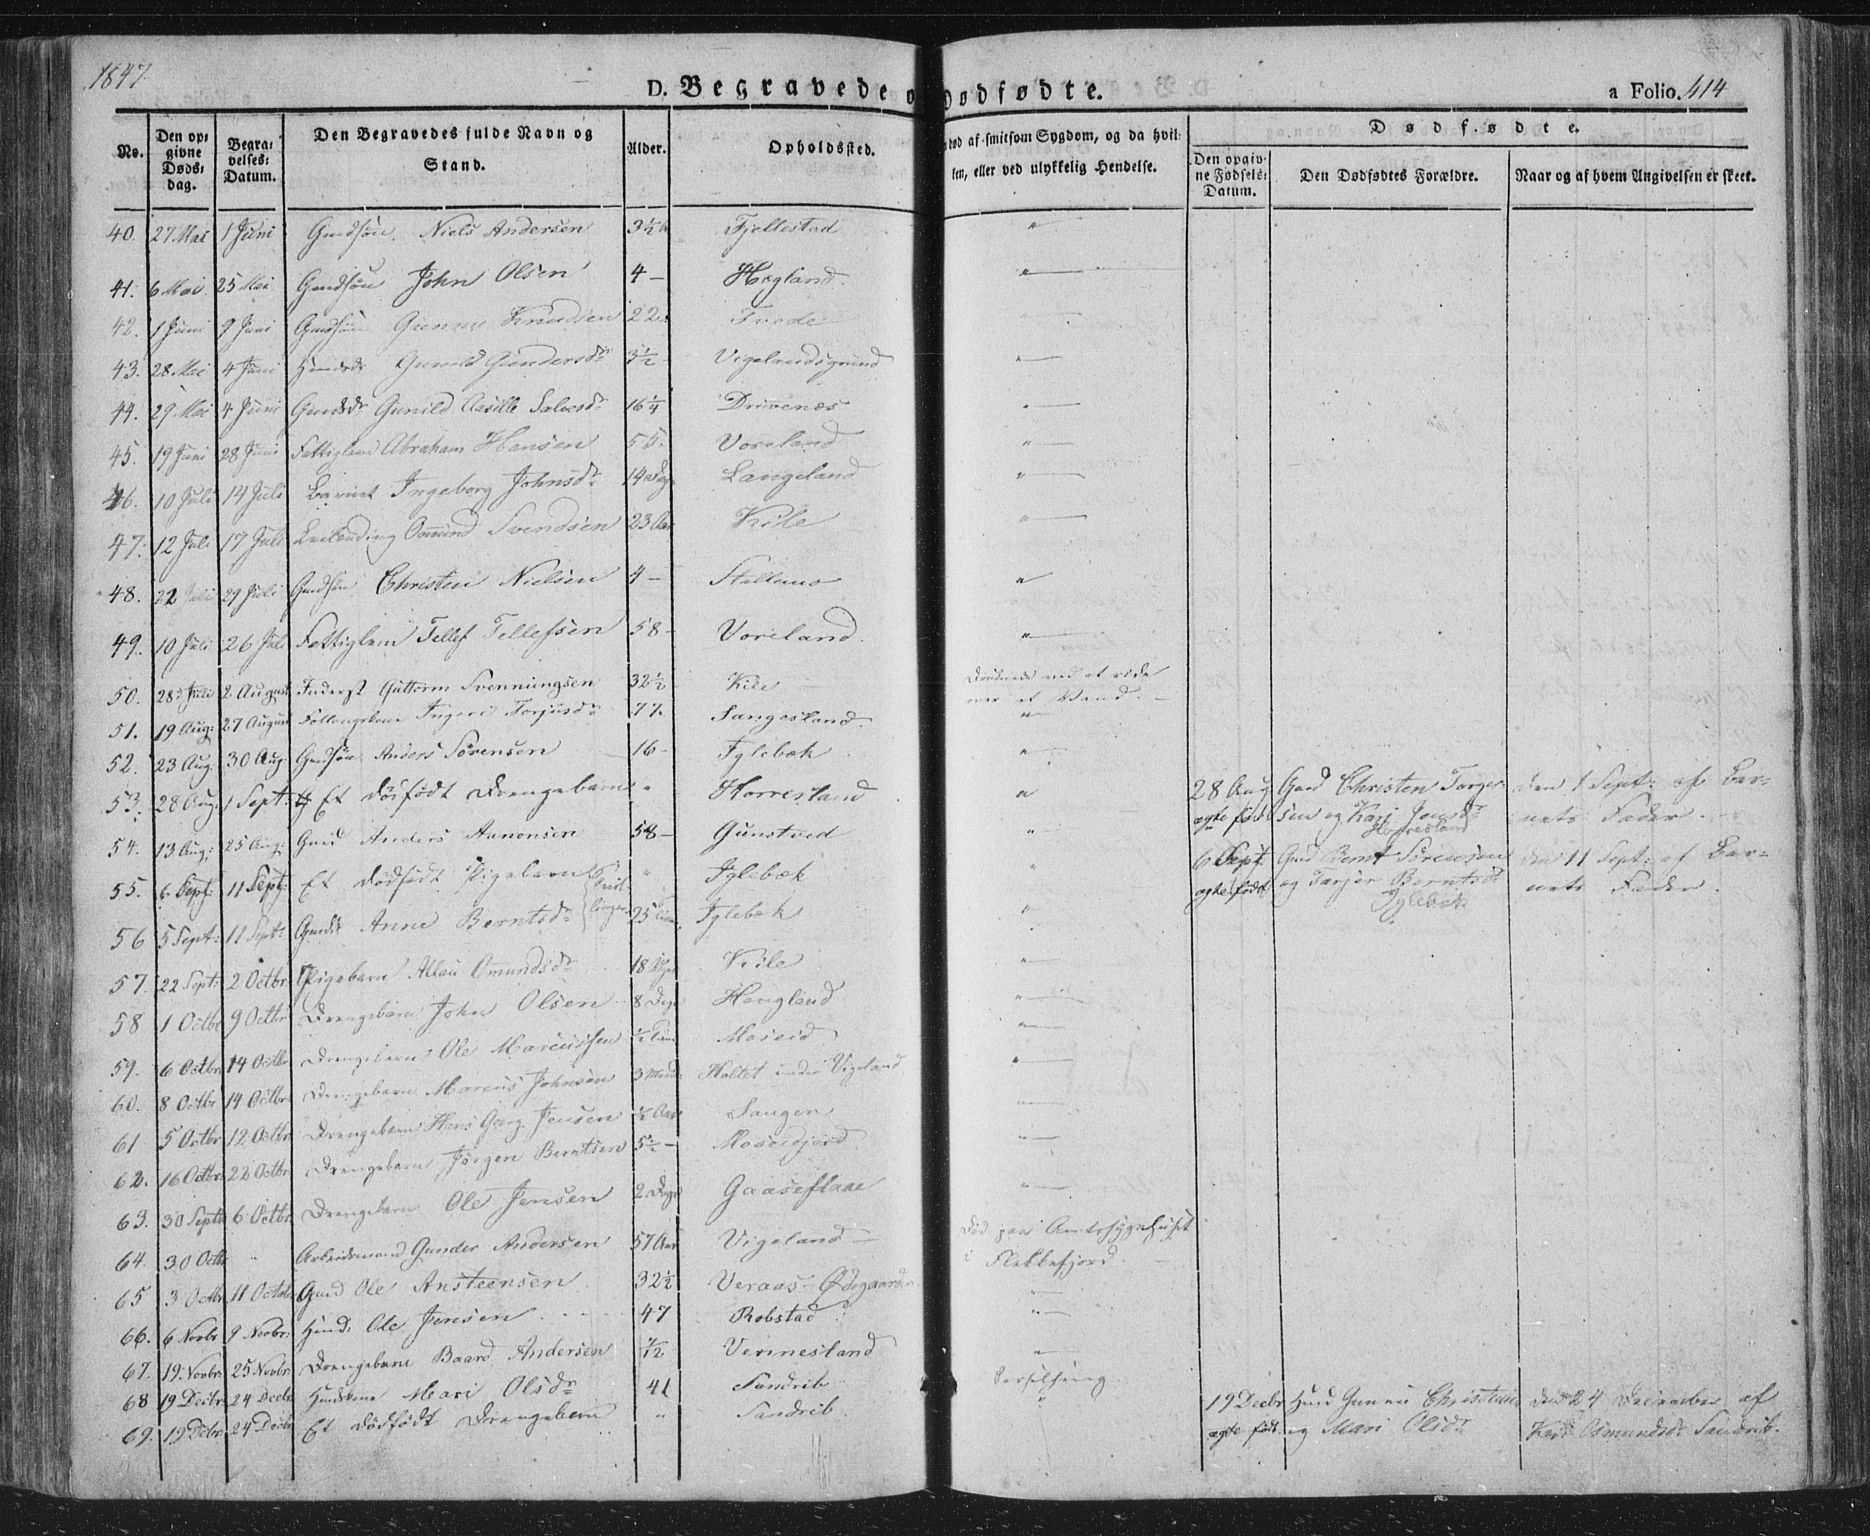 1847.
D. Begravede o
Dødfødte.
a Folio. 414
No.
Den op-
givne
Døds-
dag.
Begra-
velses-
Datum.
Den Begravedes fulde Navn og
Stand.
Alder.
Opholdssted.
død af smitsom Sygdom, og da hvil-
ken, eller ved ulykkelig Hendelse.
Dødfødte.
Den opgiv-
ne Fødsels-
Datum.
Den Dødfødtes Forældre.
Naar og af hvem Angivelsen er skeet.
40. 27 Mai 1 Juni Gmdsøn Niels Andersen 3½ Fjellestad "
41. 6 Mai 25 Mai Gmdsøn John Olsen 4 – Hægland "
42. 1 Juni 9 Juni Gmdsøn Gunnu Knudsen 22 Tvede
43. 28 Mai 4 Juni Gunild Gundersdr 3½ Vigelandsgrund "
44. 29 Mai 4 Juni Gmdsdr Gunild Aasille Salvesdr 16¼ Drivenæs "
45. 19 Juni 28 Juni Fattiglem Abraham Hansen 55. Voreland "
46. 10 Juli 14 Juli Barnet Ingeborg Johnsdr 14 Dage Langeland "
47. 12 Juli 17 Juli Leilænding Omund Svendsen 23 Aar Kile "
48. 22 Juli 29 Juli Gmdsøn Christen Nielsen 4 – "
49. 10 Juli 26 Juli Fattiglem Tellef Tellefsen 58 – Voreland. "
50. 28 Juli 2 August Inderst Guttorm Svennungsen 32½ Kile Druknede ved at ride
over et Vand. –
51. 19 Aug: 27 August Ingeri Torjusdr 77. Sangesland. "
52. 23 Aug. 30 Aug. Gmdsøn Anders Sørensen 16 – Iglebæk "
53. 28 Aug. 1 Sept: Et dødfødt Drengebarn " Horresland " 28 Aug Gmd Christen Torger- den 1 Sept: af Bar-
ægte født sen og Kari Jensdr nets Fader.
Horresland
54. 13 Aug: 25 Aug: Gmd Anders Aanonsen 58 – Gunstved "
55. 6 Sept: 11 Sept: Et dødfødt Pigebarn " Iglebæk " 6 Sept. Gmd Bernt Sörensen den 11 Sept: af Bar-
Tvil-
linger
ægte født og Tarjer Berntsdr nets Fader.
Iglebæk
56 5 Sept: 11 Sept: Gmds Anne Berntsdr 25 Iglebæk "
57. 22 Sept: 2 Octbr Pigebarn Omundsdr 18 Kile "
58 1 Octbr 9 Octbr Drengebarn John Olsen 8 Dage Haugland "
59. 6 Octbr 14 Octbr Drengebarn Ole Marcussen ½ Moseid "
60. 8 Octbr 14 Octbr Drengebarn Marcus Johnsen 3 Maan Holtet under Vigeland "
61 5 Octbr 12 Octbr Drengebarn Hans Georg Jensen ½ Aar Saugen "
62. 16 Octbr 22 Octbr Drengebarn Jörgen Berntsen 5½ – Moseidjord "
63. 30 Septb 6 Octbr Drengebarn Ole Jensen 2 Dage Gaaseflaae "
64. 30 Octbr " Arbeidsmand Gunder Andersen 57 Aar Vigeland – Død paa Amtssygehuset
i Flekkefjord. –
65 3 Octbr 11 Octbr Gmd Ole Ansteensen 32½ Veraas-Ødegaarden
66. 6 Novbr 9 Novbr: Hmd: Ole Jensen 47 Robstad "
67. 19. Novbr. 25 Novbr. Drengebarn Baard Andersen 7/12 Verinesland "
68 19 Decbr 24 Decbr Huuskone Mari Olsdr 41 Sandrib Barselseng
69. 19 Decbr. 24 Decbr Et dødfødt Drengebarn " Sandrib. " 19 Decbr Huusmd Gunnu Christens den 24 December af
ægte født og Mari Olsdr Kari Osmundsdr Sandrib.